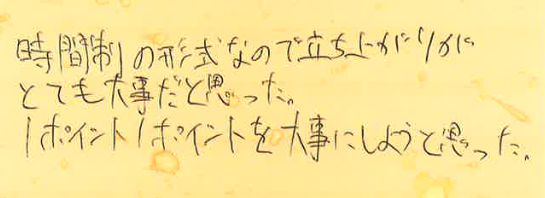 時間制の形式なので立ち上がりが
とても大事だと思った。
1ポイント1ポイントを大事にしようと思った。